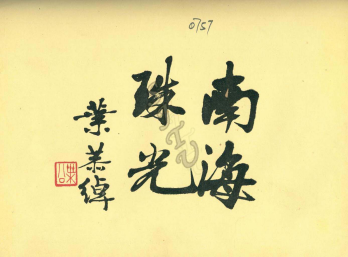 0757
南海
珠光
葉恭綽